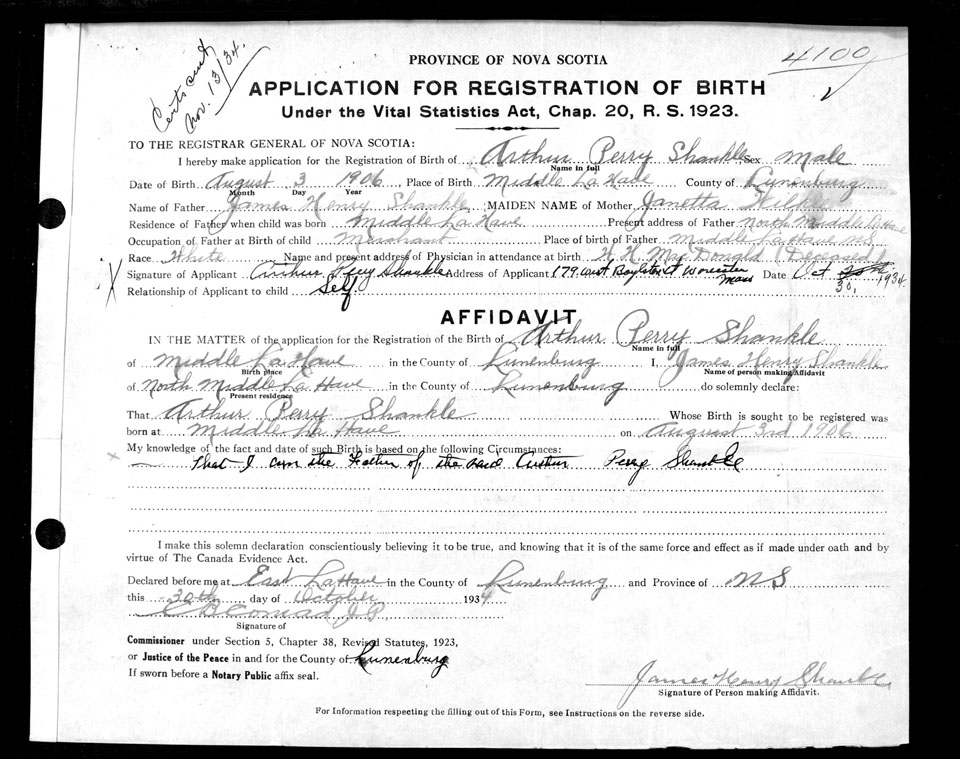 Certs sent
Nov. 13/34.
4100
PROVINCE OF NOVA SCOTIA
APPLICATION FOR REGISTRATION OF BIRTH
Under the Vital Statistics Act, Chap. 20, R. S. 1923.
TO THE REGISTRAR GENERAL OF NOVA SCOTIA:
I hereby make application for the Registration of Birth of Arthur Perry Shankle Sex Male
Name in full
Date of Birth August 3 1906 Place of Birth Middle La Have County of Lunenburg
Month Day Year
Name of Father James Henry Shankle MAIDEN NAME of Mother Janetta
Residence of Father when child was born Middle La Have Present address of Father North Middle LaHave
Occupation of Father at Birth of child Merchant Place of birth of Father Middle LaHave NS
Race White Name and present address of Physician in attendance at birth H. H. MacDonald (Deceased)
Signature of Applicant Arthur Perry Shankle Address of Applicant 179 West Boylston St Worcester Mass Date Oct 30, 1934
Relationship of Applicant to child Self.
AFFIDAVIT
IN THE MATTER of the application for the Registration of the Birth of Arthur Perry Shankle
Name in full
of Middle La Have in the County of Lunenburg I, James Henry Shankle
Birth place Name of person making Affidavit
of North Middle La Have in the County of Lunenburg do solemnly declare:
Present residence
That Arthur Perry Shankle Whose Birth is sought to be registered was
born at Middle La Have on August 3rd 1906
My knowledge of the fact and date of such Birth is based on the following Circumstances:
That I am the Father of the said Arthur Perry Shankle
I make this solemn declaration conscientiously believing it to be true, and knowing that it is of the same force and effect as if made under oath and by
virtue of The Canada Evidence Act.
Declared before me at East LaHave in the County of Lunenburg and Province of NS
this 30th day of October 1934
C B Conrad J.P.
Signature of
Commissioner under Section 5, Chapter 38, Revised Statutes, 1923,
or Justice of the Peace in and for the County of Lunenburg
If sworn before a Notary Public affix seal.
James Henry Shankle
Signature of Person making Affidavit.
For Information respecting the filling out of this Form, see Instructions on the reverse side.